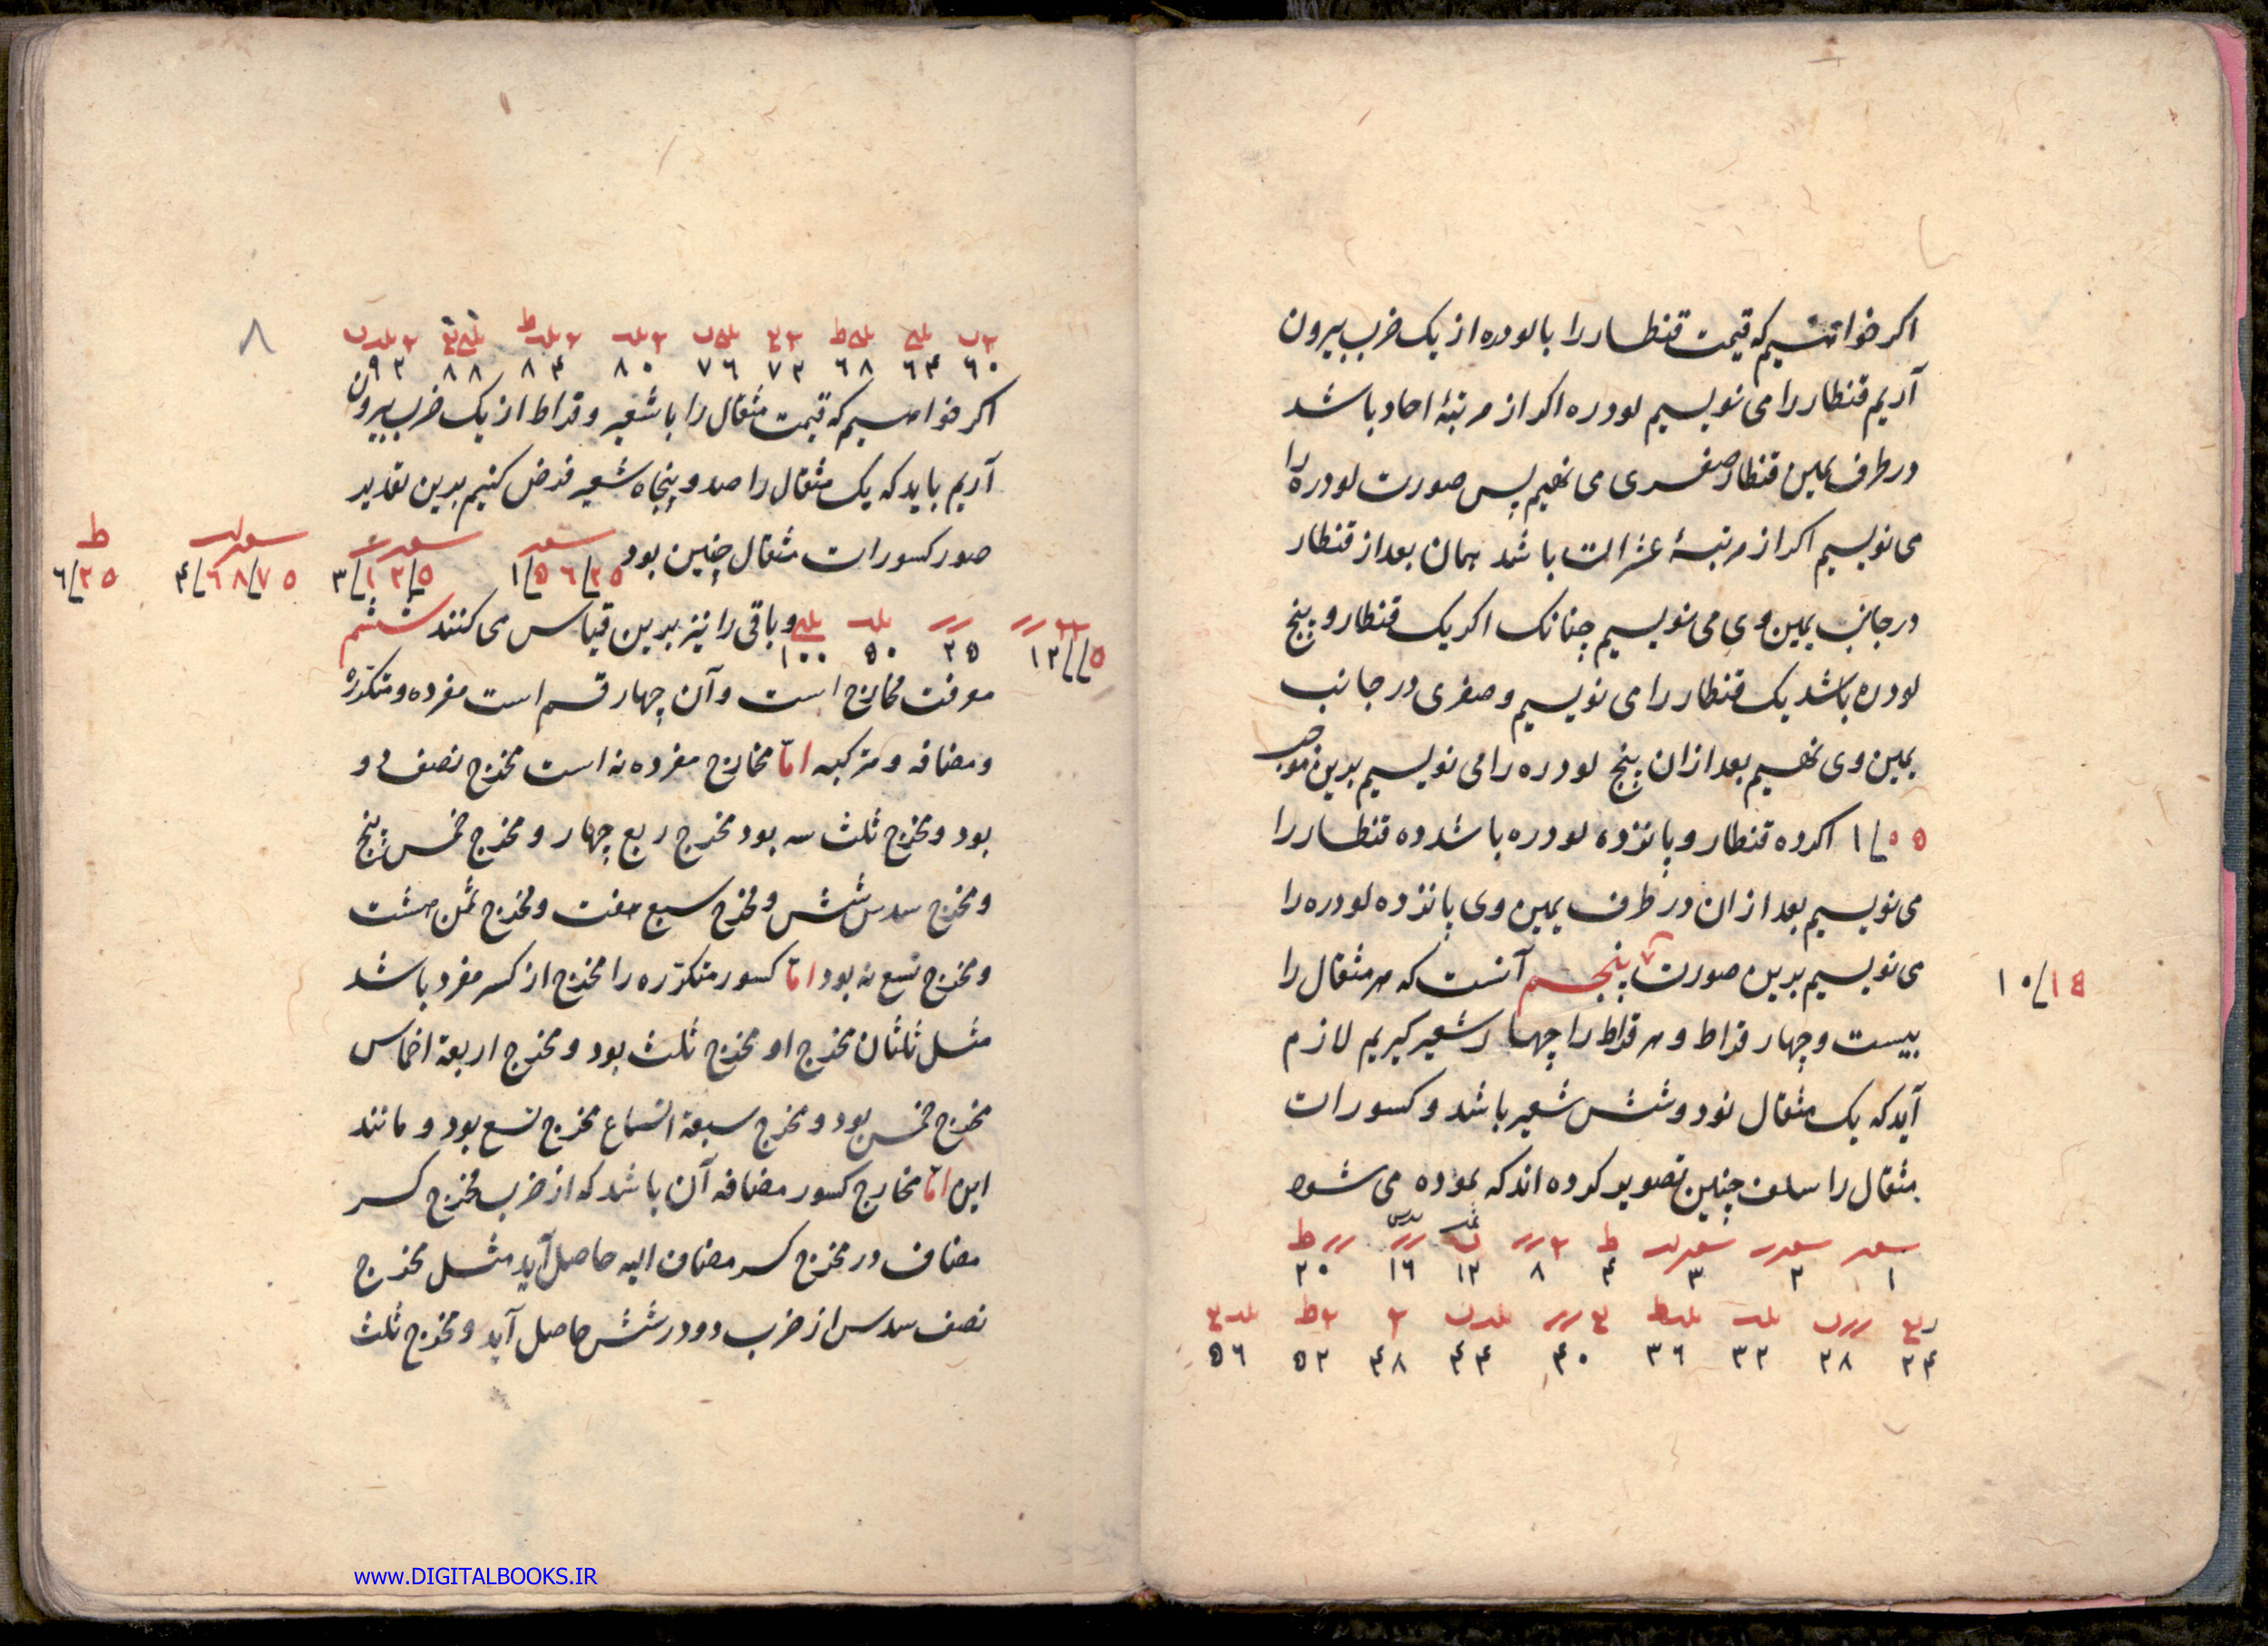 اکر خواتیسم که قیمت قنطار را با لودره از یک ضرب بیرون
آریم قنطار را می نویسیم لودره اکر از مرتبهٔ احاد باشد
در طرف یمین قنطار صفری می نهیم پس صورت لودره را
می نویسیم اکر از مرتبهٔ عشرات باشد همان بعد از قنطار
در جانب یمین وی می نویسیم چنانک اکر یک قنطار و پنج
لودره باشد یک قنطار را می نویسیم و صفری در جانب
یمین وی نهیم بعد ازان پنج لودره را می نویسیم بدین موجب
١/٠٥ اکر ده قنطار و پانزده لودره باشد ده قنطار را
می نویسیم بعد ازان در طرف یمین وی پانزده لودره را
می نویسیم بدین صورت پنجم آنست که هر مثقال را
١٠/١٥
بیست و چهار قراط و هر قراط را چهار شعیر کیریم لازم
آید که یک مثقال نود و شش شعیر باشد و کسورات
مثقال را سلف چنین تصویر کرده اند که نموده می شود
١ ٢ ٣ ۴ ٨ ١٢ ١٦ ٢٠
٢۴ ٢٨ ٣٢ ٣٦ ۴٠ ۴۴ ۴٨ ٥٢ ٥٦
٨
٦٠ ٦۴ ٦٨ ٧٢ ٧٦ ٨٠ ٨۴ ٨٨ ٩٢
اکر خواهیم که قیمت مثقال را با شعیر و قراط از یک ضرب بیرون
آریم باید که یک مثقال را صد و پنجاه شعیر فرض کنیم بدین تقدیر
صور کسورات مثقال چنین بود
١/٥٦/٢٥ ٣/١٢/٥ ۴/٦٨/٧٥ ٦/٢٥
١٢//٥ ٢٥ ٥٠ ١٠٠ و باقی را نیز بدین قیاس می کنند ششم
معرفت مخارج است و آن چهار قسم است مفرده و متکرره
و مضافه و مرکبه اما مخارج مفرده نه است مخرج نصف دو
بود و مخرج ثلث سه بود مخرج ربع چهار و مخرج خمس پنج
و مخرج سدس شش و مخرج سبع هفت و مخرج ثمن هشت
و مخرج تسع نه بود اما کسور متکرره را مخرج از کسر مفرد باشد
مثل ثلثان مخرج او مخرج ثلث بود و مخرج اربعة اخماس
مخرج خمس بود و مخرج سبعة اتساع مخرج تسع بود و مانند
این اما مخارج کسور مضافه آن باشد که از ضرب مخرج کسر
مضاف در مخرج کسر مضاف الیه حاصل آید مثل مخرج
نصف سدس از ضرب دو در شش حاصل آید و مخرج ثلث
www.DIGITALBOOKS.IR